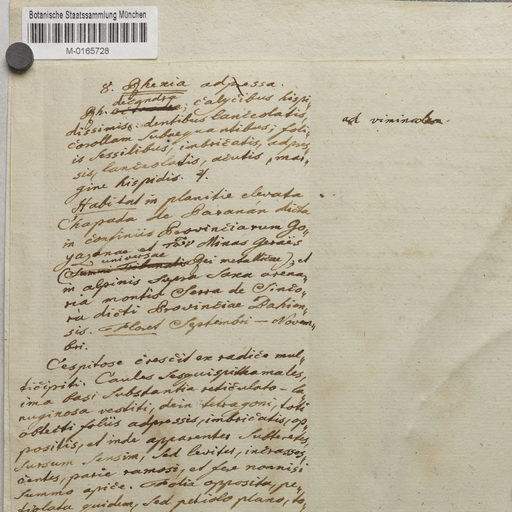 Botanische Staatssammlung München
M-0165728
8. Rhexia adpressa.
decandra
Rh. octandra; calycibus hispi-
dissimis: dentibus lanceolatis,
corollam subaequantibus; foli-
is sessilibus, imbricatis, adpres-
sis, lanceolatis, acutis, mar-
gine hispidis.
ad viminalem.
Habitat in planitie elevata
Chapada de Paranán dicta
in confiniis Provinciarum Go-
yazanae et Minas Geraës
universae
et
in alpinis supra saxa arena-
ria montis Serra de Sinco-
rá dicti Provinciae Bahien-
sis. Floret Septembri – Novem-
bri.
Cespitose crescit ex radice mul-
ticipiti. Caules sesquispithamales,
ima basi substantia reticulato-la-
nuginosa vestiti, dein tetragoni, toti
obtecti foliis adpressis, imbricatis, op-
positis, et inde apparenter subteretes,
sursum sensim, sed leviter, incrasses-
centes, parce ramosi, et fere nonnisi
summo apice. Folia opposita, pe-
tiolata quidem, sed petiolo plano, to-